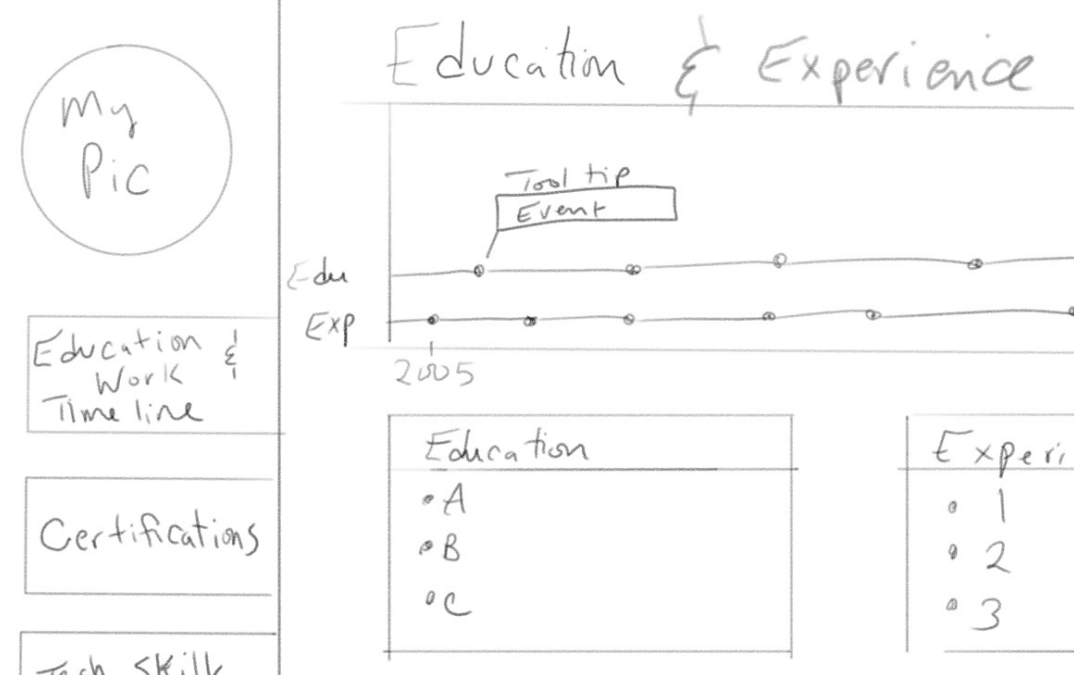 My
Pic
Education &
Work
Timeline
Certifications
Tech Skill
Education & Experience
Tool tip
Event
Edu
Exp
2005
Education
• A
• B
• C
Experi
• 1
• 2
• 3